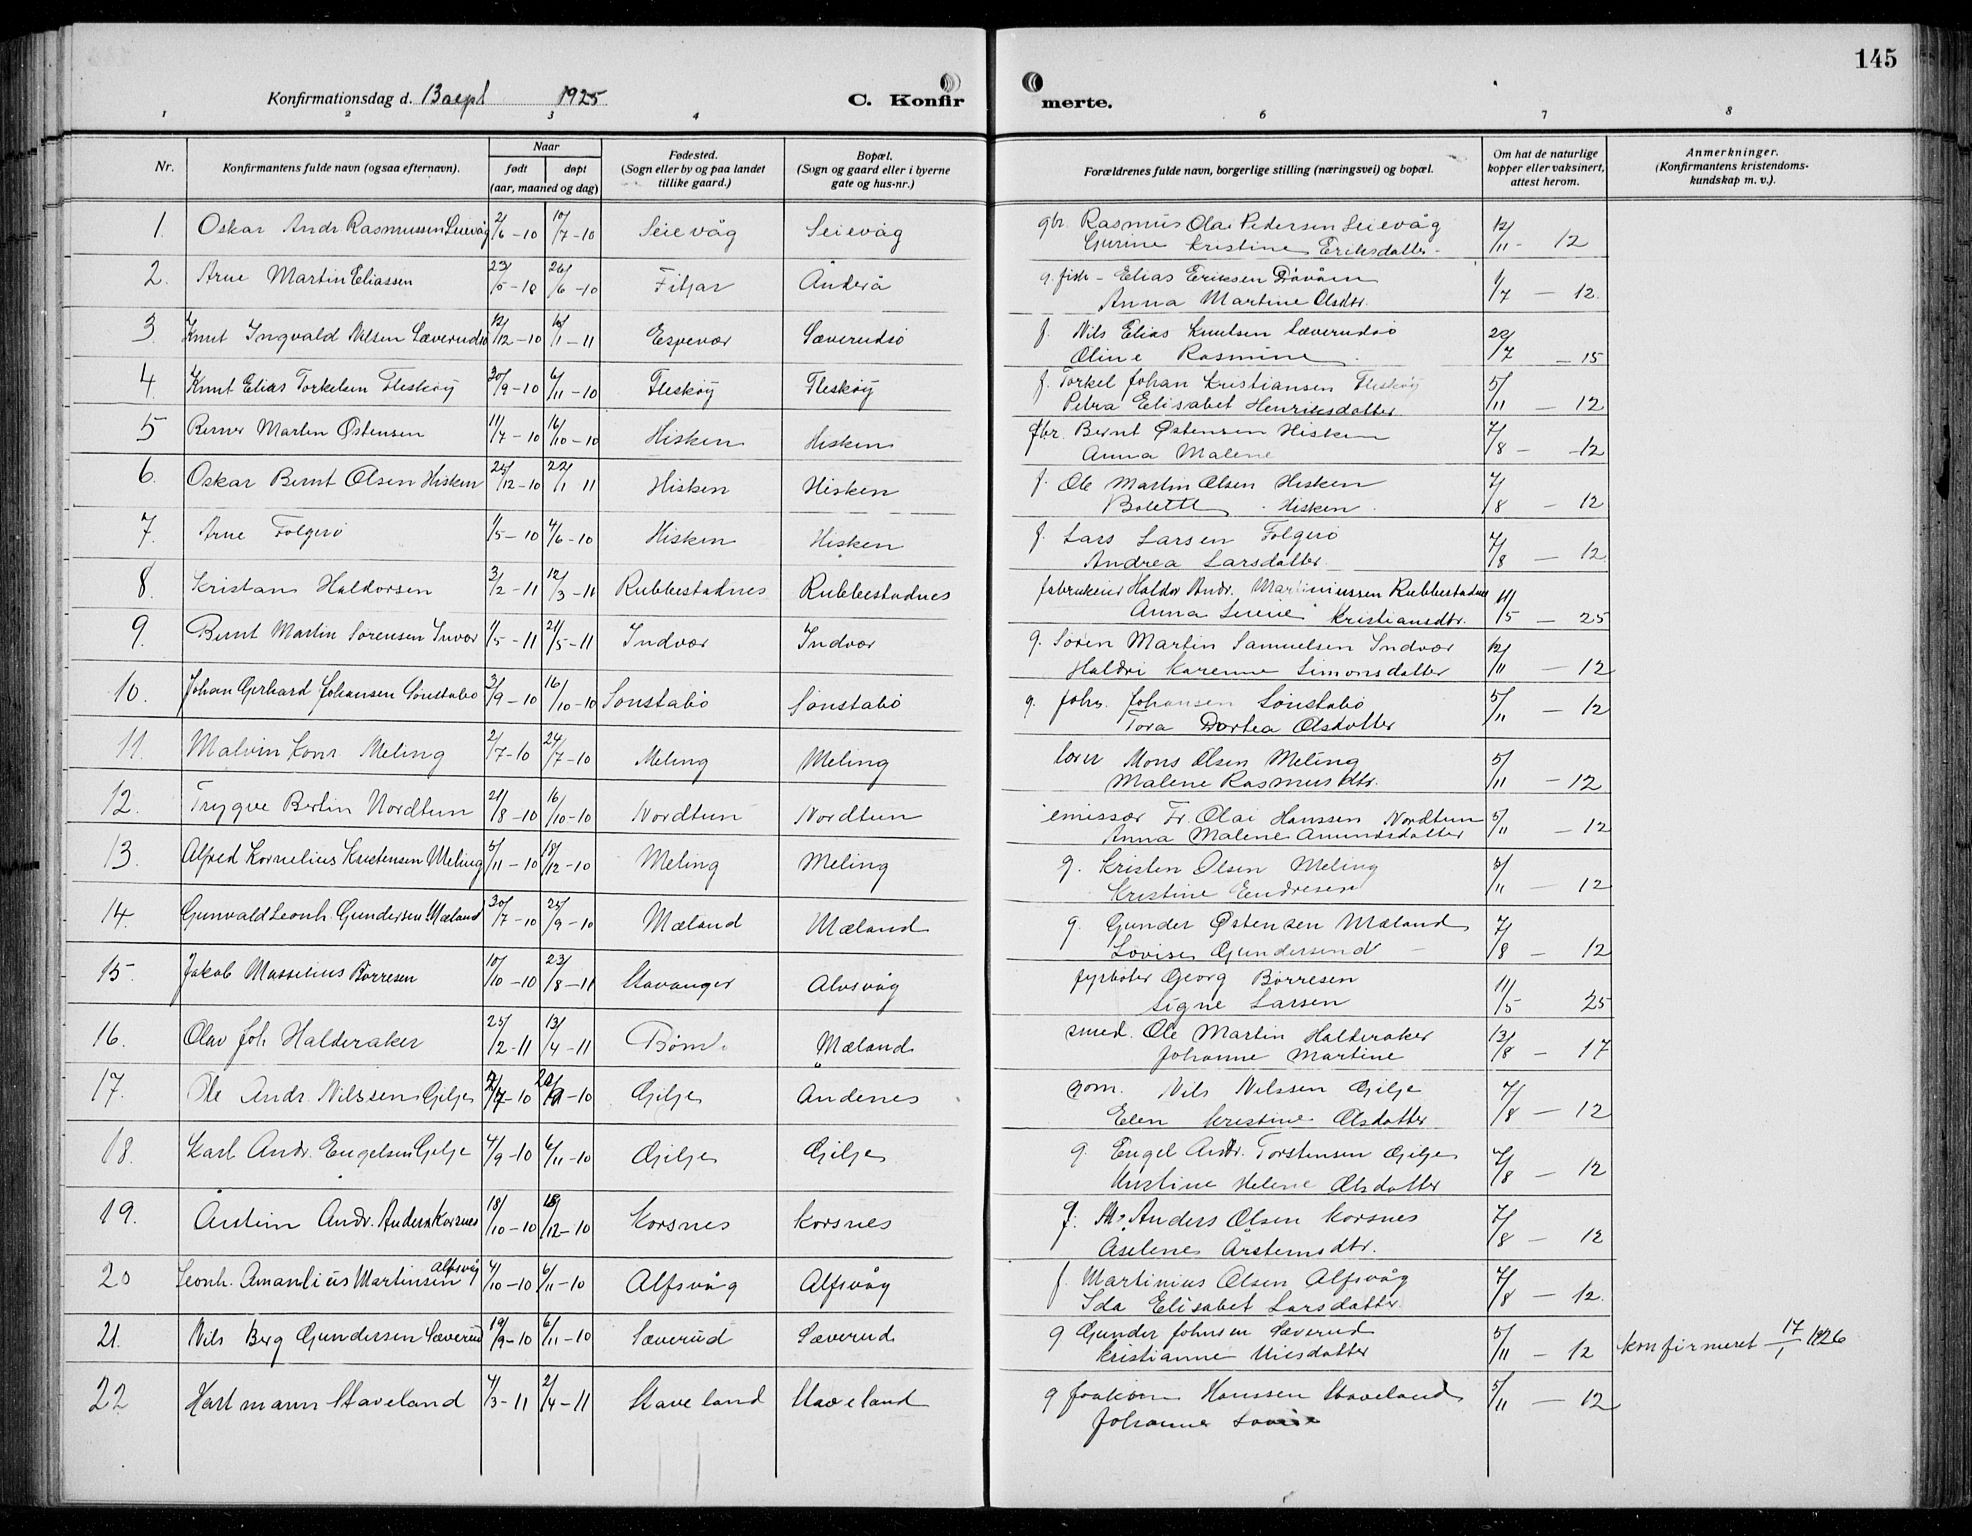 145
Konfirmationsdag d. 13 sept 1925 C. Konfirmerte.
1 2 3 4 6 7 8
Nr. Konfirmantens fulde navn (ogsaa efternavn). Naar født døpt (aar, maaned og dag) Fødested. (Sogn eller by og paa landet tillike gaard.) Bopæl. (Sogn og gaard eller i byerne gate og hus-nr.) Forældrenes fulde navn, borgerlige stilling (næringsvei) og bopæl. Om hat de naturlige kopper eller vaksinert, attest herom. Anmerkninger. (Konfirmantens kristendomskundskap m. v.).
1. Oskar Andr Rasmussen Leievåg 2/6-10 10/7-10 Leievåg Leievåg gbr. Rasmus Olai Pedersen Leievåg 12/11-12
Gurine Kristine Eriksdatter
2. Arne Martin Eliassen 23/5-10 26/6-10 Fitjar Anderå g. fisk- Elias Eriksen 1/7-12.
Anna Martine Olsdtr.
3. Knut Ingvald Nilsen Sæverudsø 12/12-10 15/1-11 Espevær Sæverudsø f. Nils Elias Knutsen Sæverudsø 22/7-15
Oline Rasmine
4 Knut Elias Torkelsen Fleskøy 30/9-10 6/11-10 Fleskøy Fleskøy f. Torkel Johan Kristiansen Fleskøy 5/11-12
Petra Elisabet Henriksdatter
5 Berner Martin Østensen 11/7-10 16/10-10 Hisken Hisken gbr. Bernt Østensen Hisken 7/8-12
Anna Malene
6. Oskar Bernt Olsen Hisken 25/12-10 22/1 11 Hisken Hisken f. Ole Martin Olsen Hisken 7/8-12
Bolette Hisken
7. Arne Folgerø 1/5-10 4/6-10 Hisken Hisken f. Lars Larsen Folgerø 7/8-12
Andrea Larsdatter
8. Kristian Haldorsen 3/2-11 12/3-11 Rubbestadnes Rubbestadnes fabrukeier Haldor Andr. Martiniussen Rubbestadnes 11/5-25
Anna Kristiansdtr.
9. Bernt Martin Sørensen Invær 1/5-11 21/5-11 Indvær Indvær g. Søren Martin Samuelsen Indvær 12/11-12
Haldri Karenne Simonsdatter
10. Johan Gerhard Johansen Sønstabø 3/9-10 16/10-10 Sønstabø Sønstabø g. Johs. Johansen Sønstabø 5/11-12
Tora Dortea Olsdatter
11. Malvin Konr Meling 2/7-10 24/7-10 Meling Meling lærer Mons Olsen Meling 5/11-12
Malene Rasmusdtr.
12. Trygve Bertin Nordtun 21/8-10 16/10-10 Nordtun Nordtun emissær Fr. Olai Hanssen Nordtun 5/11-12
Anna Malene Amundsdatter
13. Alfred Kornelius Kristensen Meling 5/11-10 18/12-10 Meling Meling g. Kristen Olsen Meling 5/11-12
Kristine Endresen
14. Gunvald Leonh. Gundersen Mæland 30/7-10 25/9-10 Mæland Mæland g. Gunder Østensen Mæland 7/8-12
Lovise Gundersend
15. Jakob Masselius Børresen 10/10-10 23/8-11 Stavanger Alvsvåg fyrbøter Georg Børresen 11/5 25
Signe Larsen
16. Olav Joh. Halderaker 25/2-11 13/4-11 Bømd. Mæland smed. Ole Martin Halderaker 13/8-17
Johanne Martine
17. Ole Andr. Nilssen Gilje 2/7-10 Gilje Andenes Nils Nilssen Gilje 7/8-12
Elen Kristine Olsdatter
18. Karl Andr. Engelsen Gilje 4/9-10 6/11-10 Gilje Gilje g. Engel Andr. Torstensen Gilje 7/8-12
Kristine Helene Olsdatter
19. Årstein Andr. Anders Korsnes 18/10-10 18/12-10 Korsnes Korsnes g. Anders Olsen Korsnes 7/8-12
Aselene Årsteinsdtr.
20 Leonh. Amandius Martinsen Alfsvåg 4/10-10 6/11-10 Alfsvåg Alfsvåg f. Martinius Olsen Alfsvåg 7/8-12.
Ida Elisabet Larsdatter
21. Nils Berg Gundersen Sæverud 19/9-10 6/11-10 Sæverud Sæverud g Gunder Johnsen Sæverud 5/11-12 konfirmeret 17/1 1926
Kristianne Nilsdatter
22 Hartmann Staveland 4/3-11 2/4-11 Staveland Staveland g Joakim Hanssen Staveland 5/11-12
Johanne Lovise